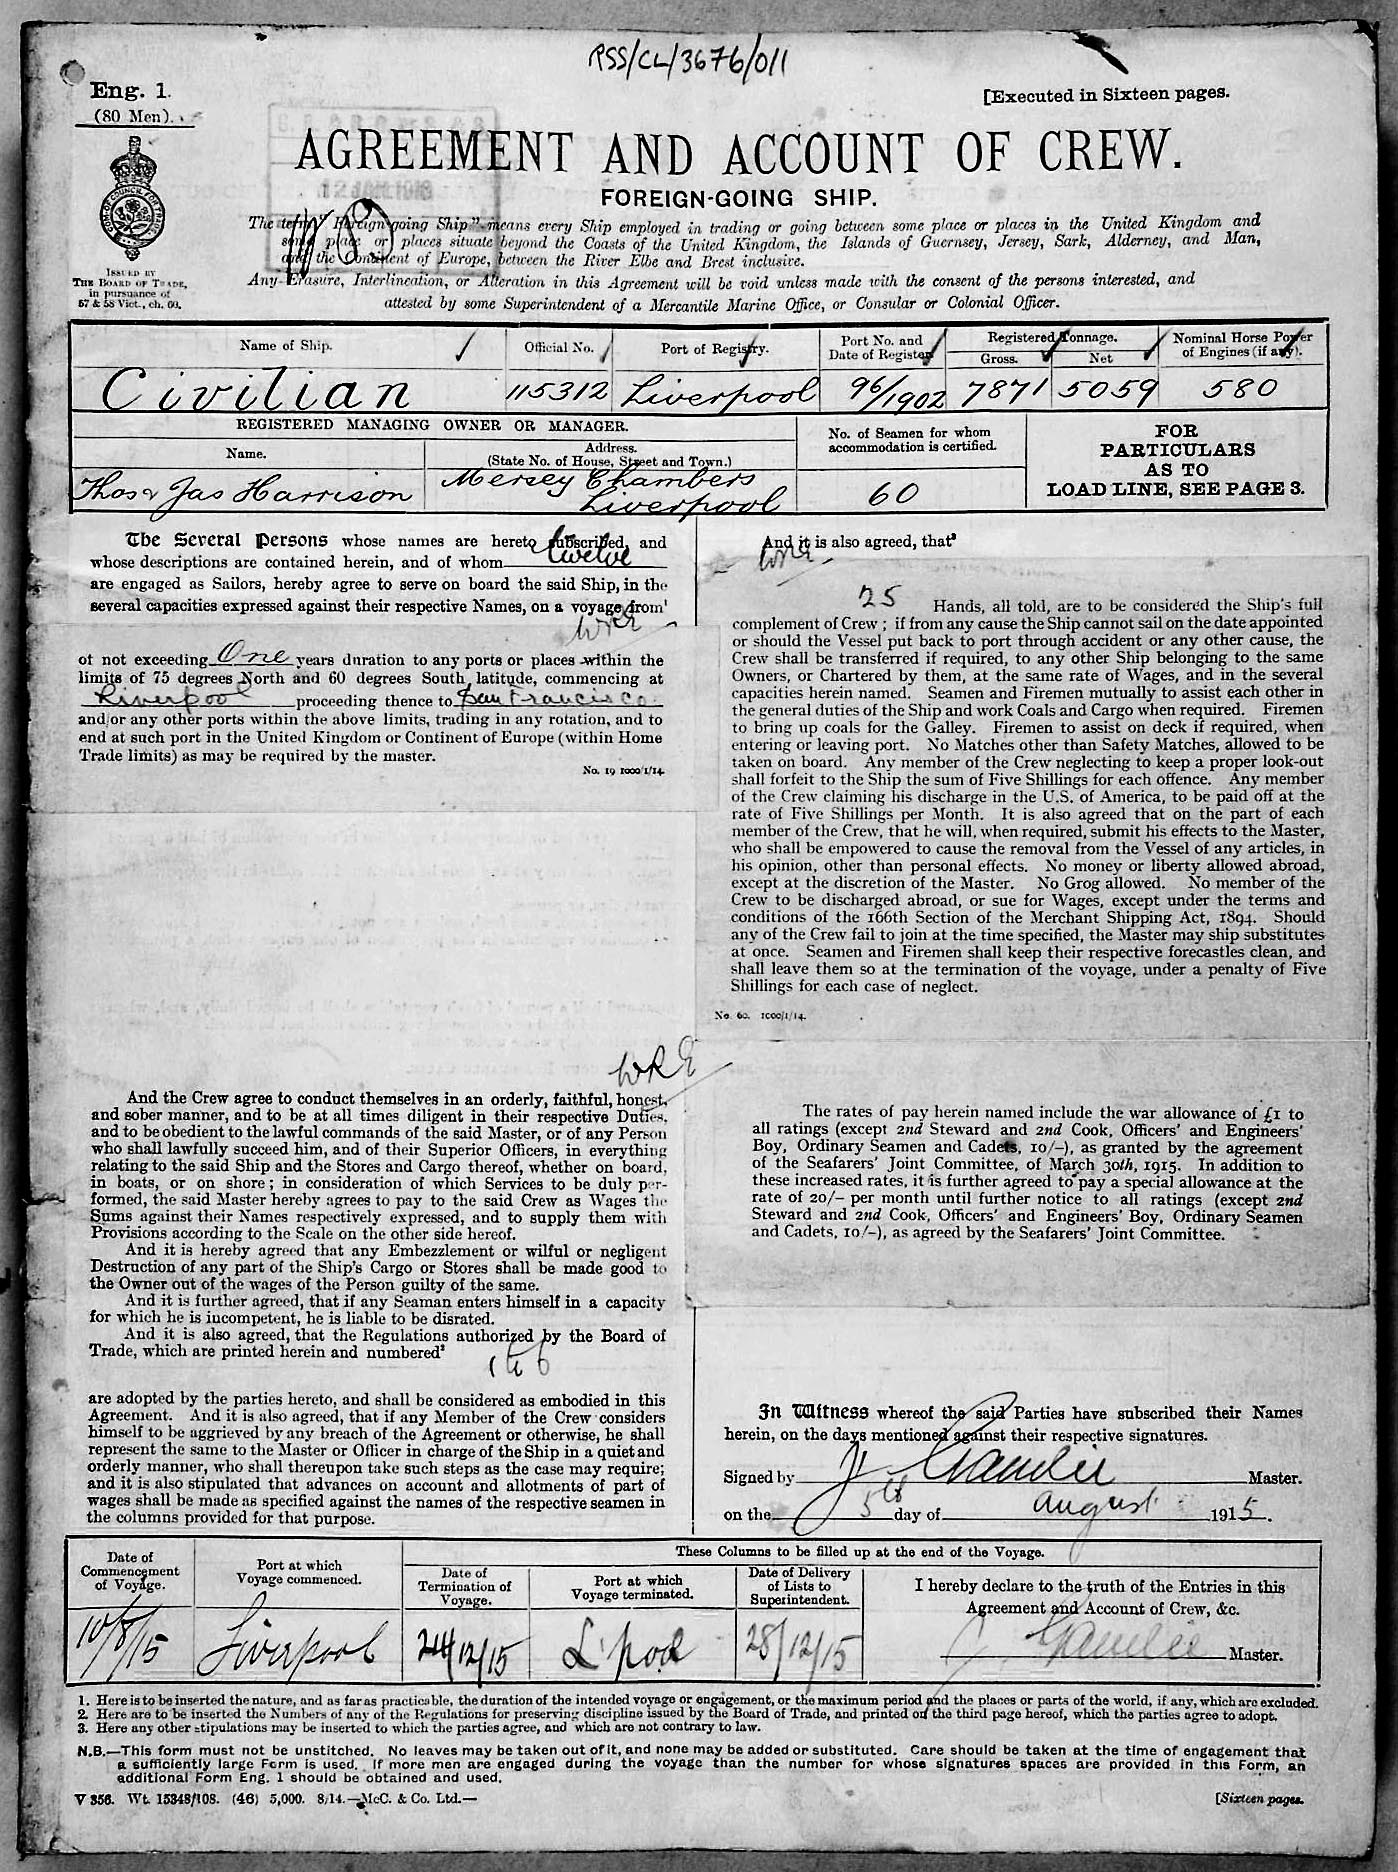 PSS/CL/3676/011
Eng. 1.
(80 Men).
[Executed in Sixteen pages.
AGREEMENT AND ACCOUNT OF CREW.
FOREIGN-GOING SHIP.
ISSUED BY
THE BOARD OF TRADE,
in pursuance of
57 & 58 Vict., ch. 60.
The term "Foreign-going Ship" means every Ship employed in trading or going between some place or places in the United Kingdom and
some place or places situate beyond the Coasts of the United Kingdom, the Islands of Guernsey, Jersey, Sark, Alderney, and Man,
and the Continent of Europe, between the River Elbe and Brest inclusive.
Any Erasure, Interlineation, or Alteration in this Agreement will be void unless made with the consent of the persons interested, and
attested by some Superintendent of a Mercantile Marine Office, or Consular or Colonial Officer.
Name of Ship. Official No. Port of Registry. Port No. and Date of Register Registered Tonnage. Gross. Net Nominal Horse Power of Engines (if any).
Civilian 115312 Liverpool 96/1902 7871 5059 580
REGISTERED MANAGING OWNER OR MANAGER.
Name. Address. (State No. of House, Street and Town.)
No. of Seamen for whom accommodation is certified.
Thos & Jas Harrison Mersey Chambers Liverpool
60
FOR
PARTICULARS
AS TO
LOAD LINE, SEE PAGE 3.
The Several Persons whose names are hereto subscribed, and
whose descriptions are contained herein, and of whom twelve
are engaged as Sailors, hereby agree to serve on board the said Ship, in the
several capacities expressed against their respective Names, on a voyage from¹
WRE
of not exceeding One years duration to any ports or places within the
limits of 75 degrees North and 60 degrees South latitude, commencing at
Liverpool proceeding thence to San Francisco
and/or any other ports within the above limits, trading in any rotation, and to
end at such port in the United Kingdom or Continent of Europe (within Home
Trade limits) as may be required by the master.
No. 19 1000/1/14.
WRE
And the Crew agree to conduct themselves in an orderly, faithful, honest,
and sober manner, and to be at all times diligent in their respective Duties,
and to be obedient to the lawful commands of the said Master, or of any Person
who shall lawfully succeed him, and of their Superior Officers, in everything
relating to the said Ship and the Stores and Cargo thereof, whether on board,
in boats, or on shore; in consideration of which Services to be duly per-
formed, the said Master hereby agrees to pay to the said Crew as Wages the
Sums against their Names respectively expressed, and to supply them with
Provisions according to the Scale on the other side hereof.
And it is hereby agreed that any Embezzlement or wilful or negligent
Destruction of any part of the Ship's Cargo or Stores shall be made good to
the Owner out of the wages of the Person guilty of the same.
And it is further agreed, that if any Seaman enters himself in a capacity
for which he is incompetent, he is liable to be disrated.
And it is also agreed, that the Regulations authorized by the Board of
Trade, which are printed herein and numbered²
1 to 6
are adopted by the parties hereto, and shall be considered as embodied in this
Agreement. And it is also agreed, that if any Member of the Crew considers
himself to be aggrieved by any breach of the Agreement or otherwise, he shall
represent the same to the Master or Officer in charge of the Ship in a quiet and
orderly manner, who shall thereupon take such steps as the case may require;
and it is also stipulated that advances on account and allotments of part of
wages shall be made as specified against the names of the respective seamen in
the columns provided for that purpose.
And it is also agreed, that³
WRE
25 Hands, all told, are to be considered the Ship's full
complement of Crew; if from any cause the Ship cannot sail on the date appointed
or should the Vessel put back to port through accident or any other cause, the
Crew shall be transferred if required, to any other Ship belonging to the same
Owners, or Chartered by them, at the same rate of Wages, and in the several
capacities herein named. Seamen and Firemen mutually to assist each other in
the general duties of the Ship and work Coals and Cargo when required. Firemen
to bring up coals for the Galley. Firemen to assist on deck if required, when
entering or leaving port. No Matches other than Safety Matches, allowed to be
taken on board. Any member of the Crew neglecting to keep a proper look-out
shall forfeit to the Ship the sum of Five Shillings for each offence. Any member
of the Crew claiming his discharge in the U.S. of America, to be paid off at the
rate of Five Shillings per Month. It is also agreed that on the part of each
member of the Crew, that he will, when required, submit his effects to the Master,
who shall be empowered to cause the removal from the Vessel of any articles, in
his opinion, other than personal effects. No money or liberty allowed abroad,
except at the discretion of the Master. No Grog allowed. No member of the
Crew to be discharged abroad, or sue for Wages, except under the terms and
conditions of the 166th Section of the Merchant Shipping Act, 1894. Should
any of the Crew fail to join at the time specified, the Master may ship substitutes
at once. Seamen and Firemen shall keep their respective forecastles clean, and
shall leave them so at the termination of the voyage, under a penalty of Five
Shillings for each case of neglect.
No. 60. 1000/1/14.
The rates of pay herein named include the war allowance of £1 to
all ratings (except 2nd Steward and 2nd Cook, Officers' and Engineers'
Boy, Ordinary Seamen and Cadets, 10/-), as granted by the agreement
of the Seafarers' Joint Committee, of March 30th, 1915. In addition to
these increased rates, it is further agreed to pay a special allowance at the
rate of 20/- per month until further notice to all ratings (except 2nd
Steward and 2nd Cook, Officers' and Engineers' Boy, Ordinary Seamen
and Cadets, 10/-), as agreed by the Seafarers' Joint Committee.
In Witness whereof the said Parties have subscribed their Names
herein, on the days mentioned against their respective signatures.
Signed by Master.
on the 5th day of August 1915.
These Columns to be filled up at the end of the Voyage.
Date of Commencement of Voyage. Port at which Voyage commenced. Date of Termination of Voyage. Port at which Voyage terminated. Date of Delivery of Lists to Superintendent.
10/8/15 Liverpool 24/12/15 L'pool 28/12/15
I hereby declare to the truth of the Entries in this
Agreement and Account of Crew, &c.
Master.
1. Here is to be inserted the nature, and as far as practicable, the duration of the intended voyage or engagement, or the maximum period and the places or parts of the world, if any, which are excluded.
2. Here are to be inserted the Numbers of any of the Regulations for preserving discipline issued by the Board of Trade, and printed on the third page hereof, which the parties agree to adopt.
3. Here any other stipulations may be inserted to which the parties agree, and which are not contrary to law.
N.B.—This form must not be unstitched. No leaves may be taken out of it, and none may be added or substituted. Care should be taken at the time of engagement that
a sufficiently large Form is used. If more men are engaged during the voyage than the number for whose signatures spaces are provided in this Form, an
additional Form Eng. 1 should be obtained and used.
V 356. Wt. 15348/108. (46) 5,000. 8/14.—McC. & Co. Ltd.—
[Sixteen pages.